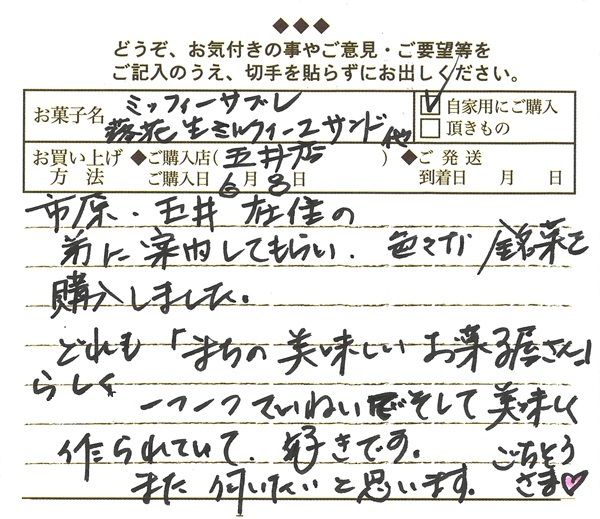 どうぞ、お気付きの事やご意見・ご要望等を
ご記入のうえ、切手を貼らずにお出しください。
お菓子名 ミッフィーサブレ
落花生ミルフィーユサンド他
自家用にご購入
頂きもの
お買い上げ方法 ◆ご購入店(五井店)
ご購入日 6月8日
◆ご発送
到着日 月 日
市原・五井在住の
弟に案内してもらい、色々な銘菓を
購入しました。
どれも「まちの美味しいお菓子屋さん」
らしく
一つ一つていねいでそして美味しく
作られていて、好きです。
また伺いたいと思います。
ごちそう
さま♡